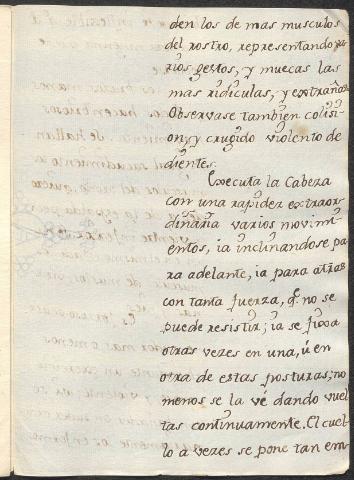 den los de mas musculos
del rostro, representando va
rios gestos, y muecas las
mas ridiculas, y extrañas
Observase tambien colisi
on, y crugido violento de
dientes.
Executa la Cabeza
con una rapidez extraor
dinaria varios movimi
entos, ia inclinandose pa
ra adelante, ia para atras
con tanta fuerza, q.e no se
puede resistir; ia se fixa
otras veces en una, ú en
otra de estas posturas; no
menos se la vé dando vuel
tas continuamente. El cuel
lo a veces se pone tan em